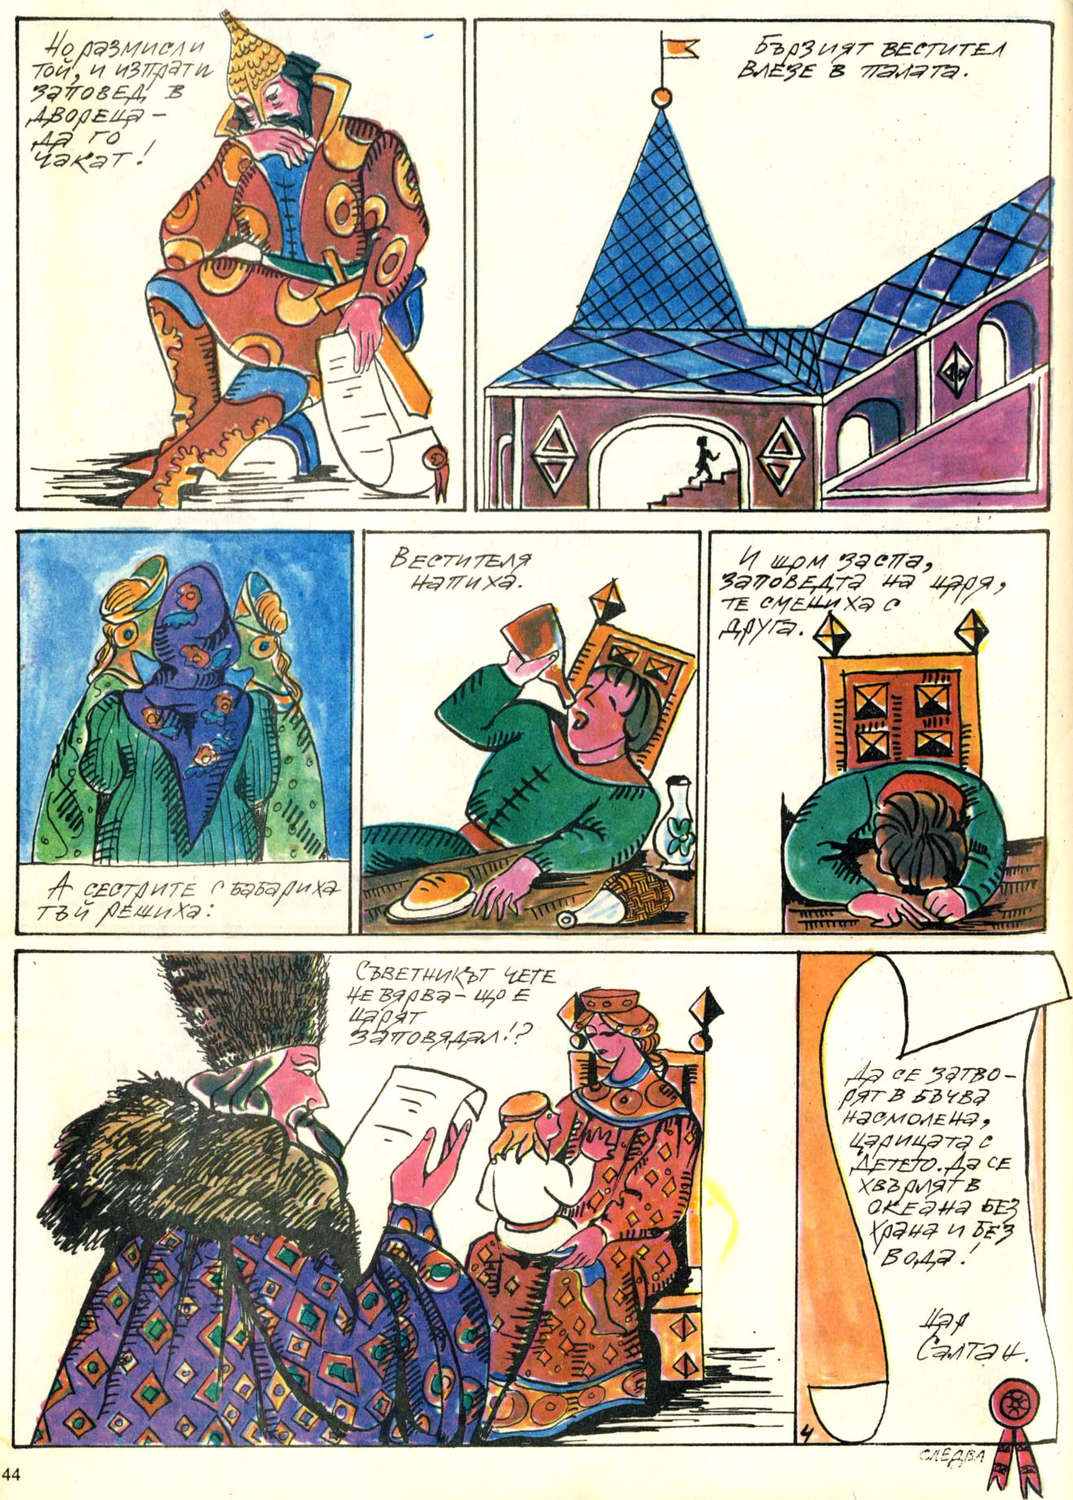 Но размисли
той, и изпрати
заповед в
двореца –
да го
чакат!
Бързият вестител
влезе в палата.
А сестрите с Бабариха
тъй решиха:
Вестителя
напиха.
И щом заспа,
заповедта на царя,
те смениха с
друга.
Съветникът чете
не вярва – що е
царят
заповядал!?
Да се затво-
рят в бъчва
насмолена,
царицата с
детето. Да се
хвърлят в
океана без
храна и без
вода!
Цар
Салтан.
4
следва
44